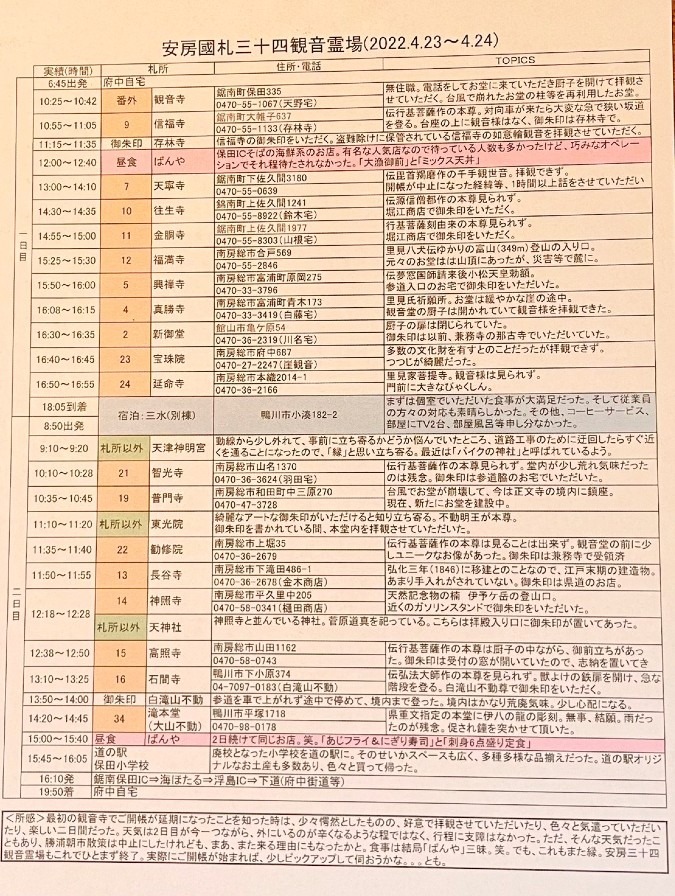 安房國札三十四観音霊場(2022.4.23～4.24)
実績(時間) 札所 住所・電話 TOPICS
6:45出発 府中自宅
一日目
10:25～10:42 番外 観音寺 鋸南町保田335 無住職。電話をしてお堂に来ていただき厨子を開けて拝観さ
0470-55-1067(天野宅) せていただく。台風で崩れたお堂の柱等を再利用したお堂。
10:55～11:05 9 信福寺 鋸南町大帷子637 伝行基菩薩作の本尊。対向車が来たら大変な急で狭い坂道
0470-55-1133(存林寺) を登る。台座の上に観音様はなく、御朱印は存林寺で。
11:15～11:35 御朱印 存林寺 信福寺の御朱印をいただく。盗難除けに保管されている信福寺の如意輪観音を拝観させていただく。
12:00～12:40 昼食 ばんや 保田ICそばの海鮮系のお店。有名な人気店なので待っている人数も多かったけど、巧みなオペレー
ションでそれ程待たされなかった。「大漁御前」と「ミックス天丼」
13:00～14:10 7 天寧寺 鋸南町下佐久間3180 伝毘首羯磨作の千手観世音。拝観できず。
0470-55-0639 開帳が中止になった経緯等、1時間以上話をさせていただい
14:30～14:35 10 往生寺 鋸南町上佐久間1241 伝源信僧都作の本尊見られず。
0470-55-8922(鈴木宅) 堀江商店で御朱印をいただく。
14:55～15:00 11 金胴寺 鋸南町上佐久間1977 行基菩薩刻由来の本尊見られず。
0470-55-8303(山根宅) 堀江商店で御朱印をいただく。
15:25～15:30 12 福満寺 南房総市合戸569 里見八犬伝ゆかりの富山(349m)登山の入り口。
0470-55-2846 元々のお堂はは山頂にあったが、災害等で麓に。
15:50～16:00 5 興禅寺 南房総市富浦町原岡275 伝夢窓国師請来後小松天皇勅額。
0470-33-3796 参道入口のお宅で御朱印をいただく。
16:08～16:15 4 真勝寺 南房総市富浦町青木173 里見氏祈願所。お堂は緩やかな崖の途中。
0470-33-3419(白藤宅) 観音堂の厨子は開かれていて観音様を拝観できた。
16:30～16:35 2 新御堂 館山市亀ケ原54 厨子の扉は閉じられていた。
0470-36-2319(川名宅) 御朱印は以前、兼務寺の那古寺でいただいていた。
16:40～16:45 23 宝珠院 南房総市府中687 多数の文化財を有すとのことだったが拝観できず。
0470-27-2247(崖観音) つつじが綺麗だった。
16:50～16:55 24 延命寺 南房総市本織2014-1 里見家菩提寺。観音様は見られず。
0470-36-2166 門前に大きなびゃくしん。
18:05到着 宿泊:三水(別棟) 鴨川市小湊182-2 まずは個室でいただいた食事が大満足だった。そして従業員
の方々の対応も素晴らしかった。その他、コーヒーサービス、
8:50出発 部屋にTV2台、部屋風呂等申し分なかった。
二日目
9:10～9:20 札所以外 天津神明宮 動線から少し外れて、事前に立ち寄るかどうか悩んでいたところ、道路工事のために迂回したらすぐ近
くを通ることになったので、「縁」と思い立ち寄る。最近は「バイクの神社」と呼ばれているよう。
10:10～10:28 21 智光寺 南房総市山名1370 伝行基菩薩作の本尊見られず。堂内が少し荒れ気味だった
0470-36-3624(羽田宅) のは残念。御朱印は参道脇のお宅でいただく。
10:35～10:45 19 普門寺 南房総市和田町中三原270 台風でお堂が崩壊して、今は正文寺の境内に鎮座。
0470-47-3728 現在、新たにお堂を建設中。
11:10～11:20 札所以外 東光院 綺麗なアートな御朱印がいただけると知り立ち寄る。不動明王が本尊。
御朱印を書かれている間、本堂内を拝観させていただいた。
11:35～11:40 22 勧修院 南房総市上堀35 伝行基菩薩作の本尊は見ることは出来ず。観音堂の前に少
0470-36-2679 しユニークなお像があった。御朱印は兼務寺で受領済
11:50～11:55 13 長谷寺 南房総市下滝田486-1 弘化三年(1846)に移建とのことなので、江戸末期の建造物。
0470-36-2678(金木商店) あまり手入れがされていない。御朱印は県道のお店。
12:18～12:28 14 神照寺 南房総市平久里中205 天然記念物の楠 伊予ケ岳の登山口。
0470-58-0341(樋田商店) 近くのガソリンスタンドで御朱印をいただいた。
札所以外 天神社 神照寺と並んでいる神社。菅原道真を祀っている。こちらは拝殿入り口に御朱印が置いてあった。
12:38～12:50 15 高照寺 南房総市山田1162 伝行基菩薩作の本尊は厨子の中ながら、御前立ちがあっ
0470-58-0743 た。御朱印は受付の窓が開いていたので、志納を置いてき
13:10～13:25 16 石間寺 鴨川市下小原374 伝弘法大師作の本尊を見られず。獣よけの鉄扉を開け、急な
04-7097-0183(白滝山不動) 階段を登る。白滝山不動尊で御朱印をいただく。
13:50～14:00 御朱印 白滝山不動 参道を車で上がれず途中で停めて、境内まで登った。境内はかなり荒廃気味。少し心配になる。
14:20～14:45 34 滝本堂 鴨川市平塚1718 県重文指定の本堂に伊八の龍の彫刻。無事、結願。雨だっ
(大山不動) 0470-98-0178 たのが残念。促され鐘を突かせて頂いた。
15:00～15:40 昼食 ばんや 2日続けて同じお店。笑。「あじフライ&にぎり寿司」と「刺身6点盛り定食」
15:45～16:05 道の駅 廃校となった小学校を道の駅に。そのせいかスペースも広く、多種多様な品揃えだった。道の駅オリジ
保田小学校 ナルなお土産も多数あり、色々と買って帰った。
16:10発 鋸南保田IC⇒海ほたる⇒浮島IC⇒下道(府中街道等)
19:50着 府中自宅
<所感>最初の観音寺でご開帳が延期になったことを知った時は、少々愕然としたものの、好意で拝観させていただいたり、色々と気遣っていただい
たり、楽しい二日間だった。天気は2日目が今一つながら、外にいるのが辛くなるような程ではなく、行程に支障はなかった。ただ、そんな天気だったこ
ともあり、勝浦朝市散策は中止にしたけれども、まあ、また来る理由にもなったかと。食事は結局「ばんや」三昧。笑。でも、これもまた縁。安房三十四
観音霊場もこれでひとまず終了。実際にご開帳が始まれば、少しピックアップして伺おうかな。。。とも。